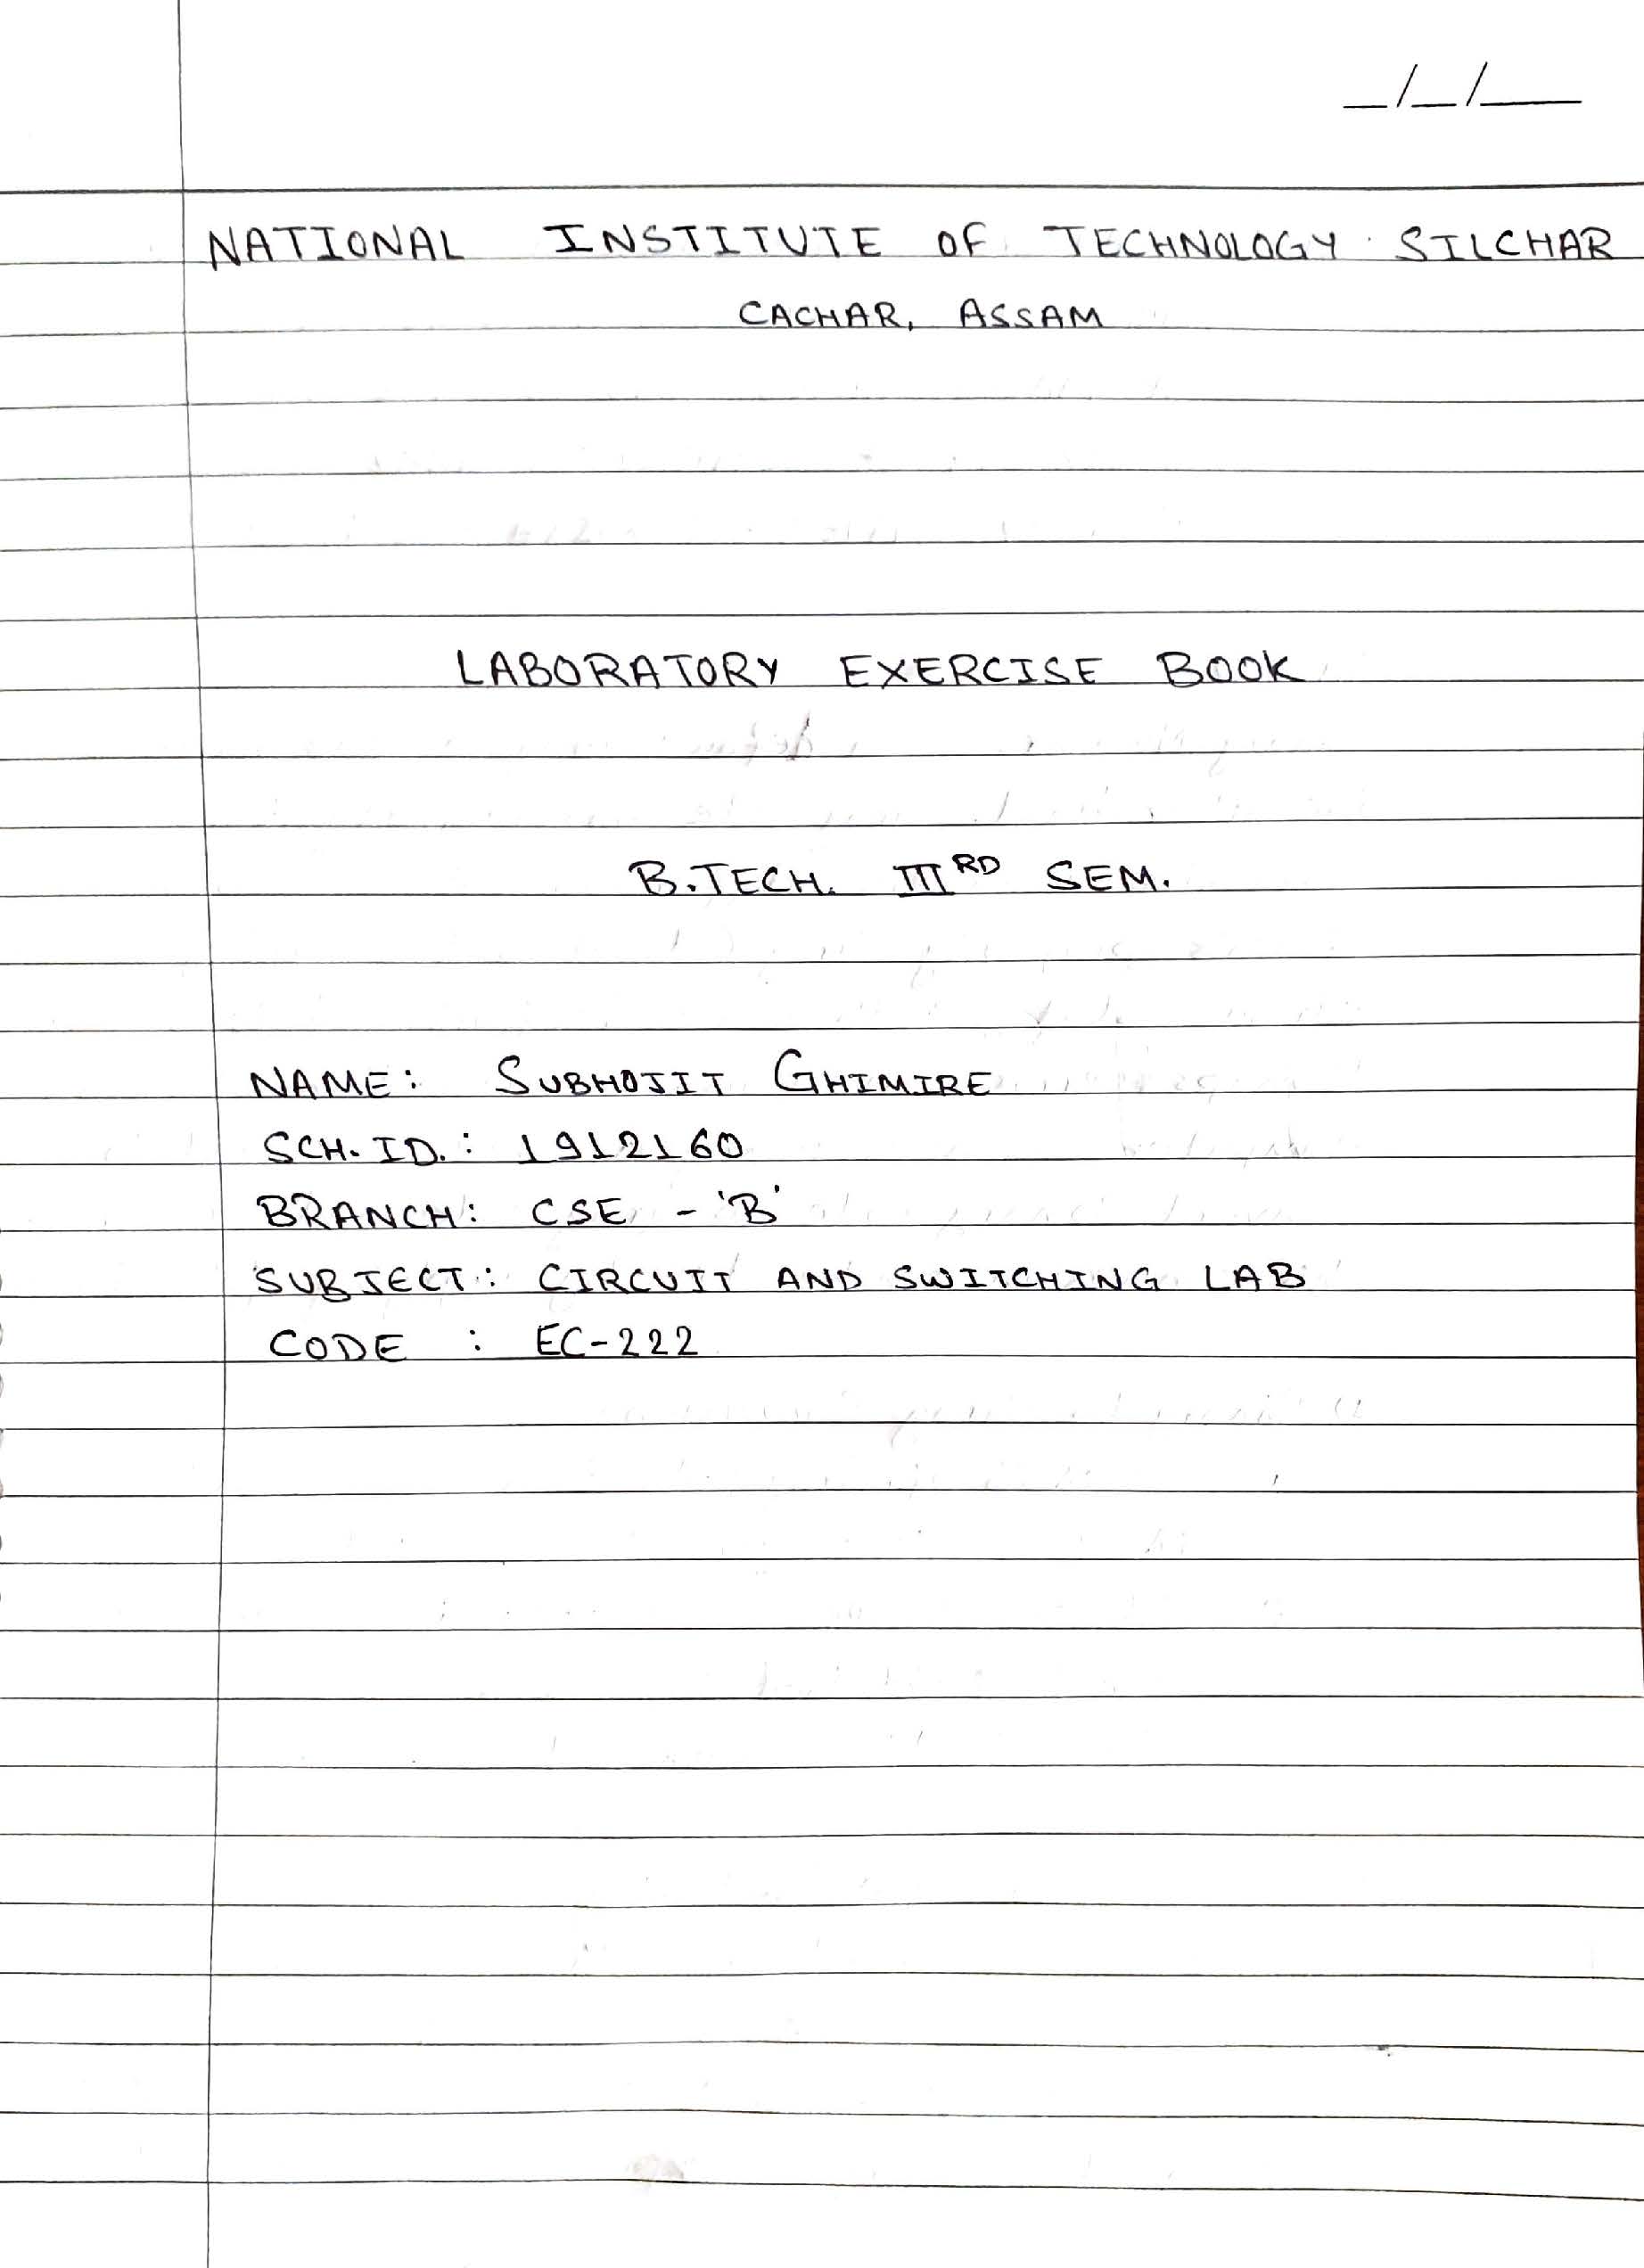 _/_/__
NATIONAL INSTITUTE OF TECHNOLOGY SILCHAR
CACHAR, ASSAM
LABORATORY EXERCISE BOOK
B.TECH. IIIRD SEM.
NAME: SUBHOJIT GHIMIRE
SCH. ID.: 1912160
BRANCH: CSE - 'B'
SUBJECT: CIRCUIT AND SWITCHING LAB
CODE : EC-222